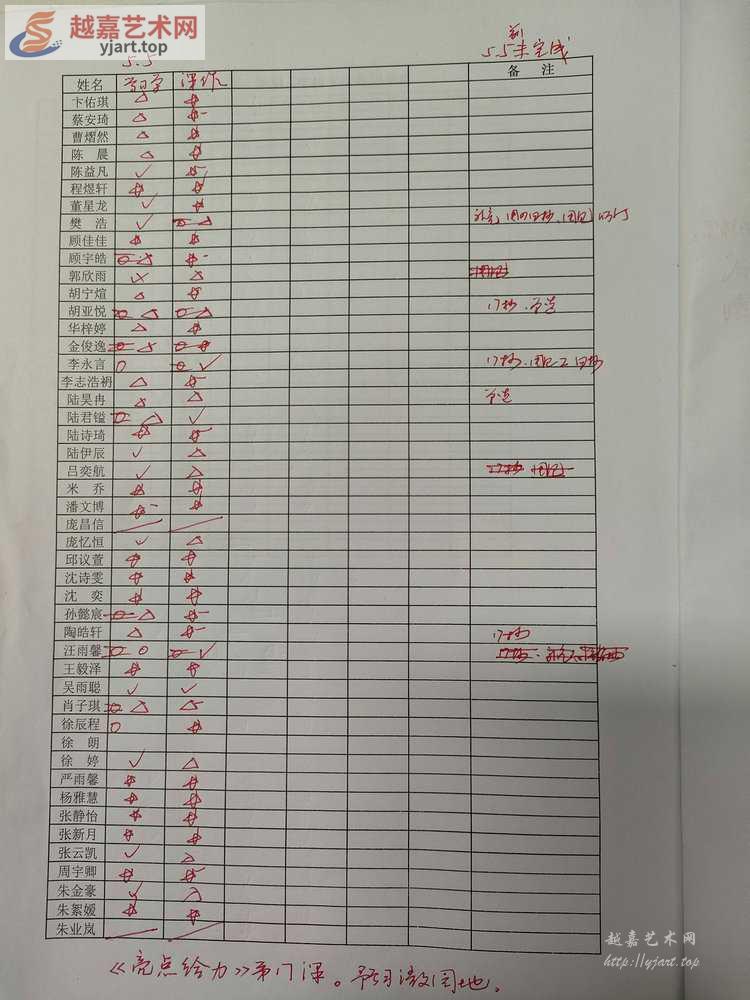 越嘉艺术网
yjart.top
5.5
前
5.5未完成
姓名 预习 课作 备 注
卞佑琪
蔡安琦
曹熠然
陈 晨
陈益凡
程煜轩
董星龙
樊 浩
顾佳佳
顾宇皓
郭欣雨
胡宁煊
胡亚悦 17抄
华梓婷
金俊逸
李永言 17抄
李志浩礽
陆昊冉
陆君镒
陆诗琦
陆伊辰
吕奕航
米 乔
潘文博
庞昌信
庞忆恒
邱议萱
沈诗雯
沈 奕
孙懿宸
陶皓轩 17抄
汪雨馨
王毅泽
吴雨聪
肖子琪
徐辰程
徐 朗
徐 婷
严雨馨
杨雅慧
张静怡
张新月
张云凯
周宇卿
朱金豪
朱絮媛
朱业岚
《亮点给力》第17课。预习语文园地。
越嘉艺术网
http://yjart.top